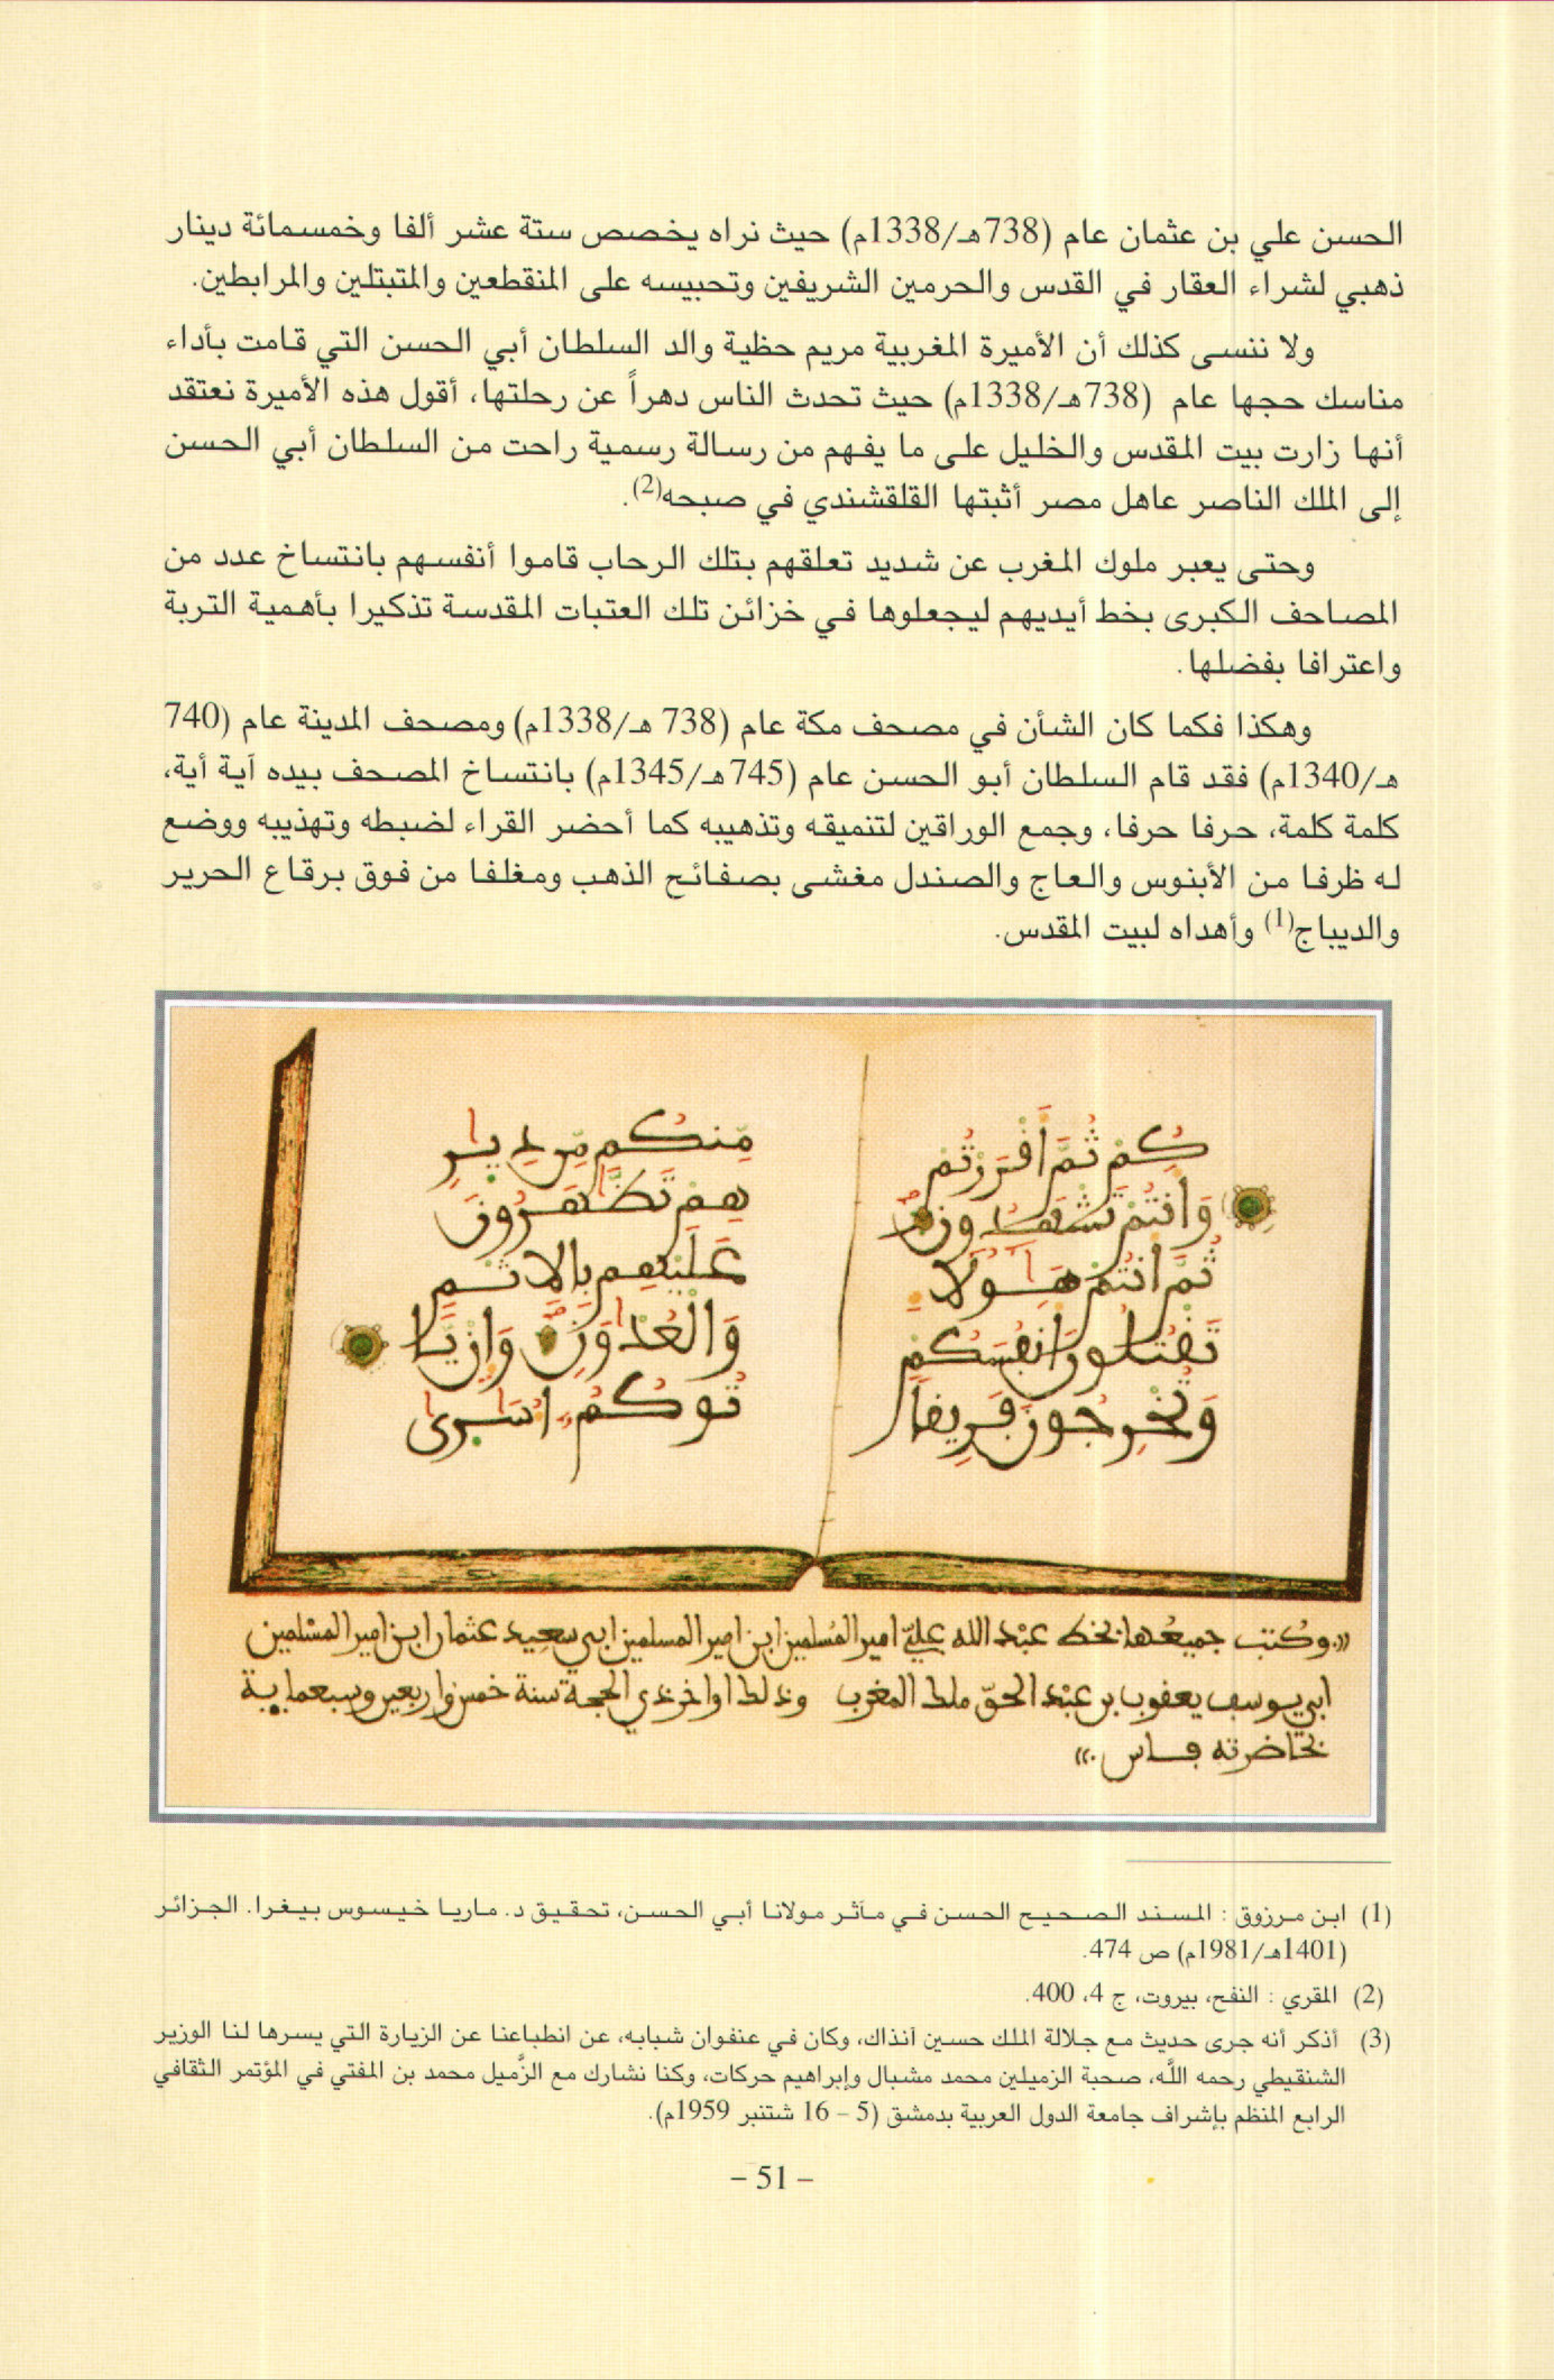 الحسن علي بن عثمان عام (738هـ/1338م) حيث نراه يخصص ستة عشر ألفا وخمسمائة دينار
ذهبي لشراء العقار في القدس والحرمين الشريفين وتحبيسه على المنقطعين والمتبتلين والمرابطين.
ولا ننسى كذلك أن الأميرة المغربية مريم حظية والد السلطان أبي الحسن التي قامت بأداء
مناسك حجها عام (738هـ/1338م) حيث تحدث الناس دهراً عن رحلتها، أقول هذه الأميرة نعتقد
أنها زارت بيت المقدس والخليل على ما يفهم من رسالة رسمية راحت من السلطان أبي الحسن
إلى الملك الناصر عاهل مصر أثبتها القلقشندي في صبحه(2).
وحتى يعبر ملوك المغرب عن شديد تعلقهم بتلك الرحاب قاموا أنفسهم بانتساخ عدد من
المصاحف الكبرى بخط أيديهم ليجعلوها في خزائن تلك العتبات المقدسة تذكيرا بأهمية التربة
واعترافا بفضلها.
وهكذا فكما كان الشأن في مصحف مكة عام (738 هـ/1338م) ومصحف المدينة عام (740
هـ/1340م) فقد قام السلطان أبو الحسن عام (745هـ/1345م) بانتساخ المصحف بيده آية أية،
كلمة كلمة، حرفا حرفا، وجمع الوراقين لتنميقه وتذهيبه كما أحضر القراء لضبطه وتهذيبه ووضع
له ظرفا من الأبنوس والعاج والصندل مغشى بصفائح الذهب ومغلفا من فوق برقاع الحرير
والديباج(1) وأهداه لبيت المقدس.
كُمْ ثُمَّ أَقْرَرْتُمْ
وَأَنتُمْ تَشْهَدُونَ
ثُمَّ أَنتُمْ هَٰؤُلَاءِ
تَقْتُلُونَ أَنفُسَكُمْ
وَتُخْرِجُونَ فَرِيقًا
مِّنكُم مِّن دِيَٰرِ
هِمْ تَظَّٰهَرُونَ
عَلَيْهِم بِالْإِثْمِ
وَالْعُدْوَٰنِ وَإِن يَّا
تُوكُمْ أُسَٰرَىٰ
«وكتب جميعها بخط عبد الله علي امير المسلمين ابن امير المسلمين ابي سعيد عثمان ابن امير المسلمين
ابي يوسف يعقوب بن عبد الحق ملك المغرب وذلك اواخر ذي الحجة سنة خمس واربعين وسبعماية
بحاضرته فاس.»
(1) ابن مرزوق : المسند الصحيح الحسن في مآثر مولانا أبي الحسن، تحقيق د. ماريا خيسوس بيغرا. الجزائر
(1401هـ/1981م) ص 474.
(2) المقري : النفح، بيروت، ج 4، 400.
(3) أذكر أنه جرى حديث مع جلالة الملك حسين آنذاك، وكان في عنفوان شبابه، عن انطباعنا عن الزيارة التي يسرها لنا الوزير
الشنقيطي رحمه اللَّه، صحبة الزميلين محمد مشبال وإبراهيم حركات، وكنا نشارك مع الزَّميل محمد بن المفتي في المؤتمر الثقافي
الرابع المنظم بإشراف جامعة الدول العربية بدمشق (5 – 16 شتنبر 1959م).
– 51 –